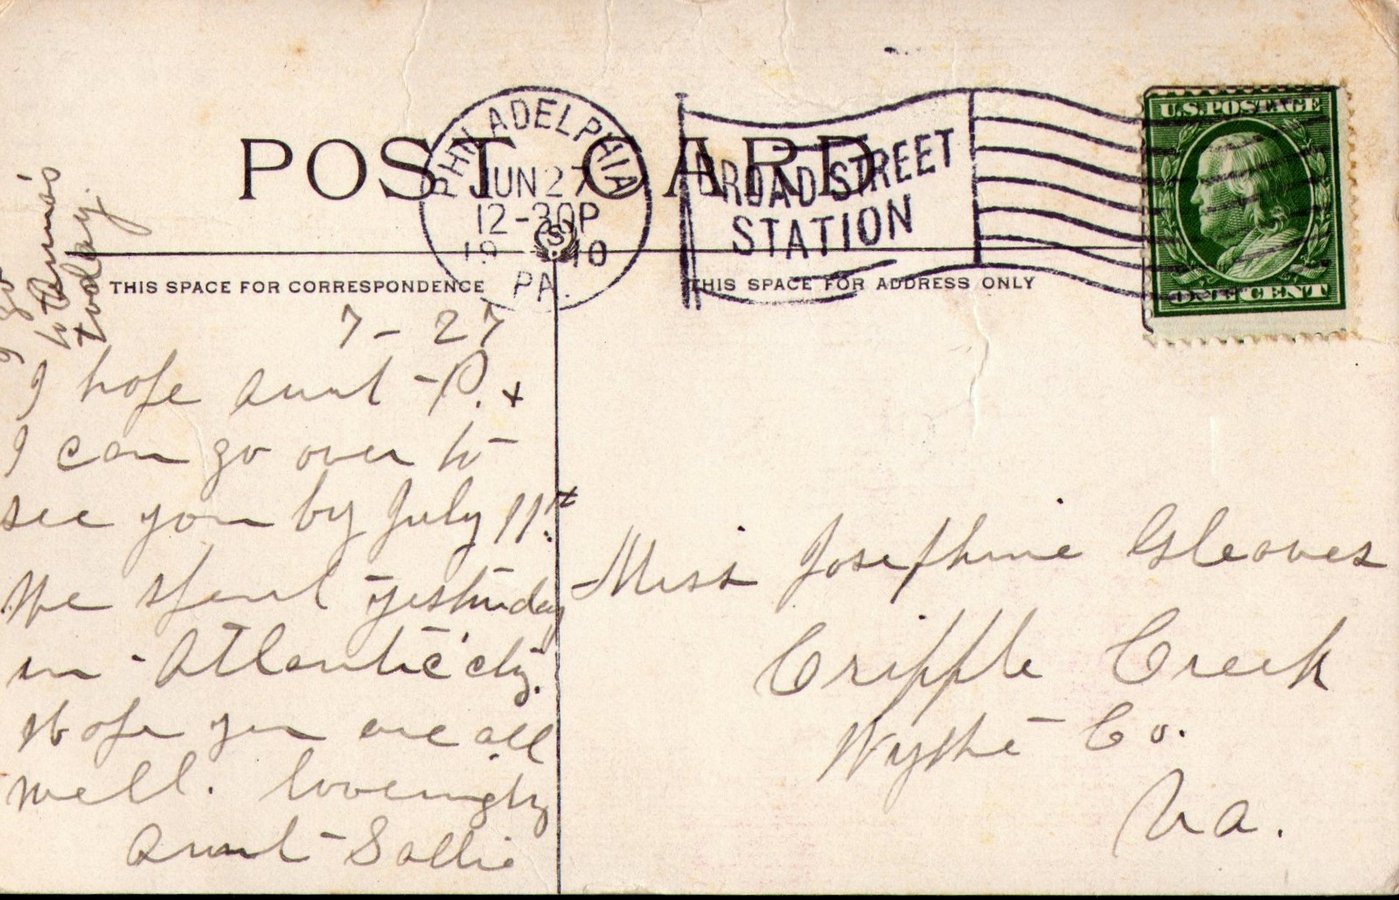 POST CARD
PHILADELPHIA
JUN 27
12-30P
1910
PA.
BROAD STREET
STATION
U.S. POSTAGE
ONE CENT
THIS SPACE FOR CORRESPONDENCE
THIS SPACE FOR ADDRESS ONLY
7-27
I hope Aunt P. +
I can go over to
see you by July 11th.
We spent yesterday
in Atlantic city.
Hope you are all
well. Lovingly
Aunt Sallie
I go
to
today.
Miss Josephine Gleaves
Cripple Creek
Wythe Co.
Va.